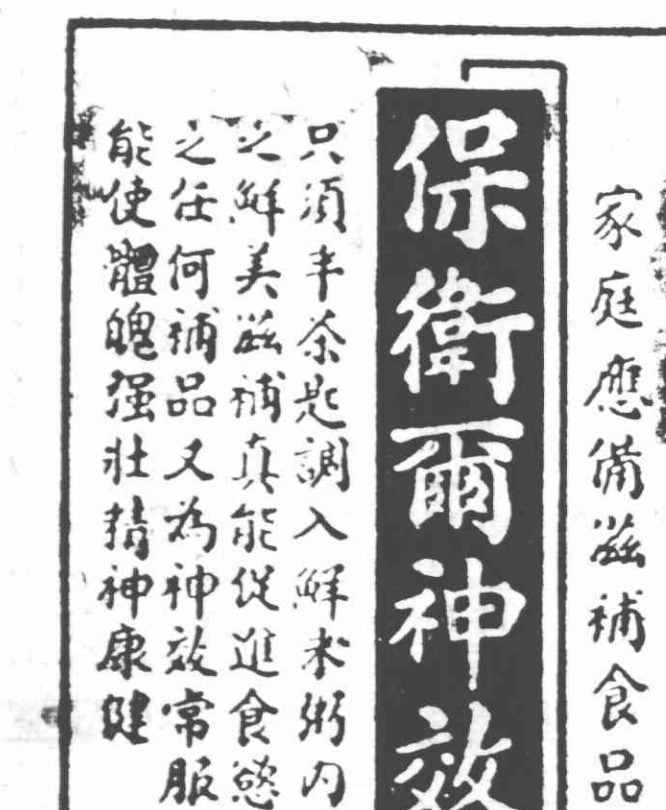 家庭應備滋補食品
保衛爾神效
只須半茶匙調入鮮米粥內
之鮮美滋補真能促進食慾
之任何補品又為神效常服
能使體魄强壯精神康健